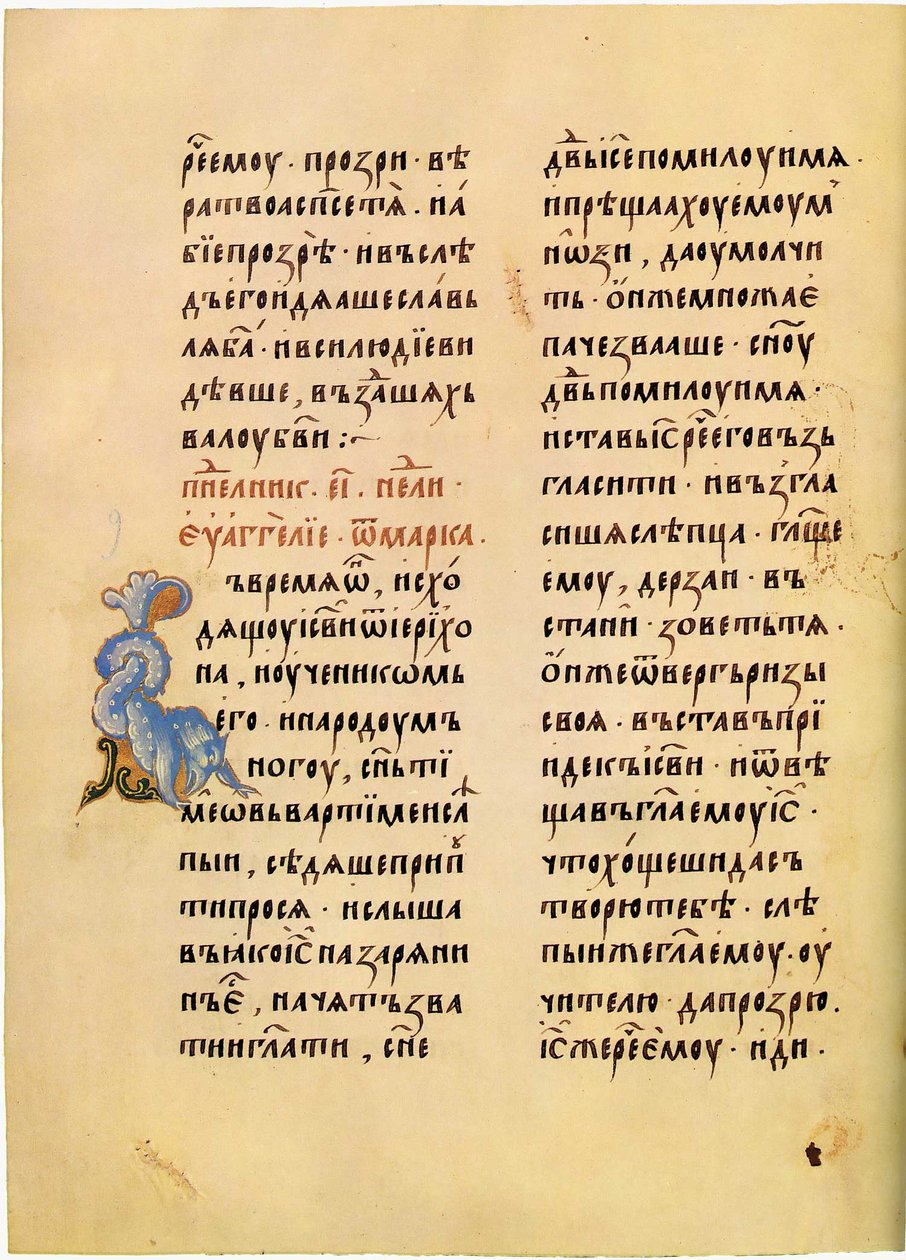 рч҃еемоу · прозри · вѣ
ратвоасп҃сетѧ̀ · и́а́
бїепрозрѣ̀ · ивъслѣ
дъего́и́дѧашесла́вь
лѧб҃а́ · и҆всилюдїеви
дѣвше, въздⷶ҇шѧхъ
валоубг҃ви :~
пⷩ҇елник · є҃і · неⷣли ·
еѵа́гг҆е́лїе · ѿмарка ·
ъвремѧѡⷩ҇, исхо́
дѧщоуіс҃виѿіерїхо
на, ноученикѡмь
его · инародоумъ
ногоу, сн҃ътї
ме́ѡвьвартїменслⷫ҇
пыи, сѣдѧшеприпоу
типросѧ · ислыша
въꙗкоіс҃назарѧни
нъе҆҃, начѧтъзва
тииг҃лати, сн҃е
дв҃ыіс҃епомилоуимѧ ·
ипрѣщаахоуемоум
нѡѕи, даоумолчи
ть · ѻ҆нжемножае҆
пачезвааше · сн҃оу
дв҃ьпомилоуимѧ ·
иставыіс҃рч҃ееговъзь
гласити · ивъзгла
сишѧслѣпца · гл҃аще
емоу, дерзаи · въ
стани · зоветьтѧ ·
ѻ҆нжеѿвергъризы
своѧ · въставъпрї
идекъіс҃ви · иѿвѣ
щавъгл҃аемоуіс҃ ·
чтохо́щешидасъ
творютебѣ · слѣ
пыижегл҃аемоу · оу
чителю · дапрозрю ·
іс҃жерч҃ее҆моу · иди ·